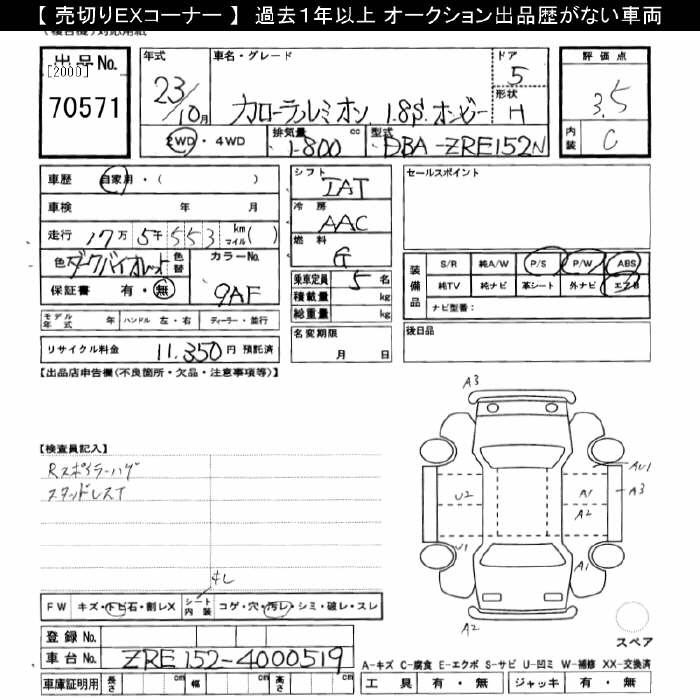 【 売切りEXコーナー 】 過去1年以上 オークション出品歴がない車両
出品No.
[2000]
70571
年式
23/10月
車名・グレード
カローラルミオン 1.8S オンビー
ドア
5
形状
H
2WD・4WD
排気量
1800 cc
型式
DBA-ZRE152N
評価点
3.5
内装
C
車歴 自家用・( )
車検 年 月
走行 17万 5千 5 5 3 km マイル( )
色 ダークバイオレット
色替
カラーNo.
9AF
保証書 有・無
モデル年式 年 ハンドル 左・右 ディーラー・並行
リサイクル料金 11,350円 預託済
シフト
IAT
冷房
AAC
燃料
G
乗車定員 5 名
積載量 kg
総重量 kg
名変期限
月 日
セールスポイント
装備品
S/R 純A/W P/S P/W ABS
純TV 純ナビ 革シート 外ナビ エアB
ナビ型番:
後日品
【出品店申告欄(不良箇所・欠品・注意事項等)】
【検査員記入】
Rスポイラーハゲ
スタッドレスT
キレ
A3
U2
A1
A2
AU1
A3
U1
A1
A2
スペア
FW キズ・トビ石・割レX
シート内装 コゲ・穴・汚レ・シミ・破レ・スレ
登録No.
車台No. ZRE152-4000519
車庫証明用 長さ cm 幅 cm 高さ cm
A-キズ C-腐食 E-エクボ S-サビ U-凹ミ W-補修 XX-交換済
工具 有・無 ジャッキ 有・無